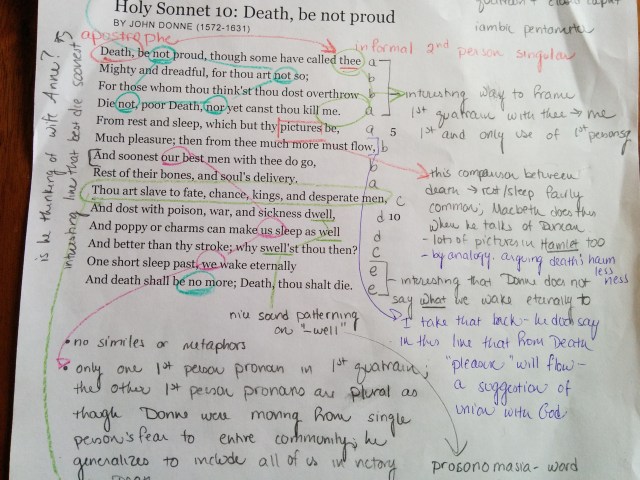 Holy Sonnet 10: Death, be not proud
BY JOHN DONNE (1572-1631)
iambic pentameter
apostrophe
informal 2nd person singular
Death, be not proud, though some have called thee a
Mighty and dreadful, for thou art not so; b
For those whom thou think'st thou dost overthrow b
Die not, poor Death, nor yet canst thou kill me. a
From rest and sleep, which but thy pictures be, a 5
Much pleasure; then from thee much more must flow, b
And soonest our best men with thee do go, b
Rest of their bones, and soul's delivery. a
Thou art slave to fate, chance, kings, and desperate men, c
And dost with poison, war, and sickness dwell, d 10
And poppy or charms can make us sleep as well d
And better than thy stroke; why swell'st thou then? c
One short sleep past, we wake eternally e
And death shall be no more; Death, thou shalt die. e
is he thinking of wife Anne?
interesting line that best die soonest
interesting way to frame
1st quatrain with thee → me
1st and only use of 1st person sg
this comparison between
death → rest/sleep fairly
common; Macbeth does this
when he talks of Duncan
- lots of pictures in Hamlet too
- by analogy, arguing death's harm
less
ness
- interesting that Donne does not
say what we wake eternally to
I take that back - he does say
in this line that from Death
"pleasure" will flow -
a suggestion of
union with God
nice sound patterning
on "-well"
• no similes or metaphors
• only one 1st person pronoun in 1st quatrain;
the other 1st person pronouns are plural as
though Donne were moving from single
person's fear to entire community; he
generalizes to include all of us in victory
prosonomasia - word